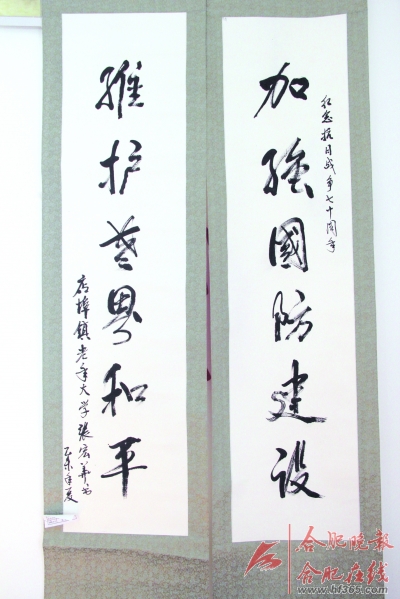 纪念抗日战争七十周年
加强國防建设
維护世界和平
店埠镇老年大学張宏并书
乙未年夏
合肥晚報
合肥在线
www.hf365.com